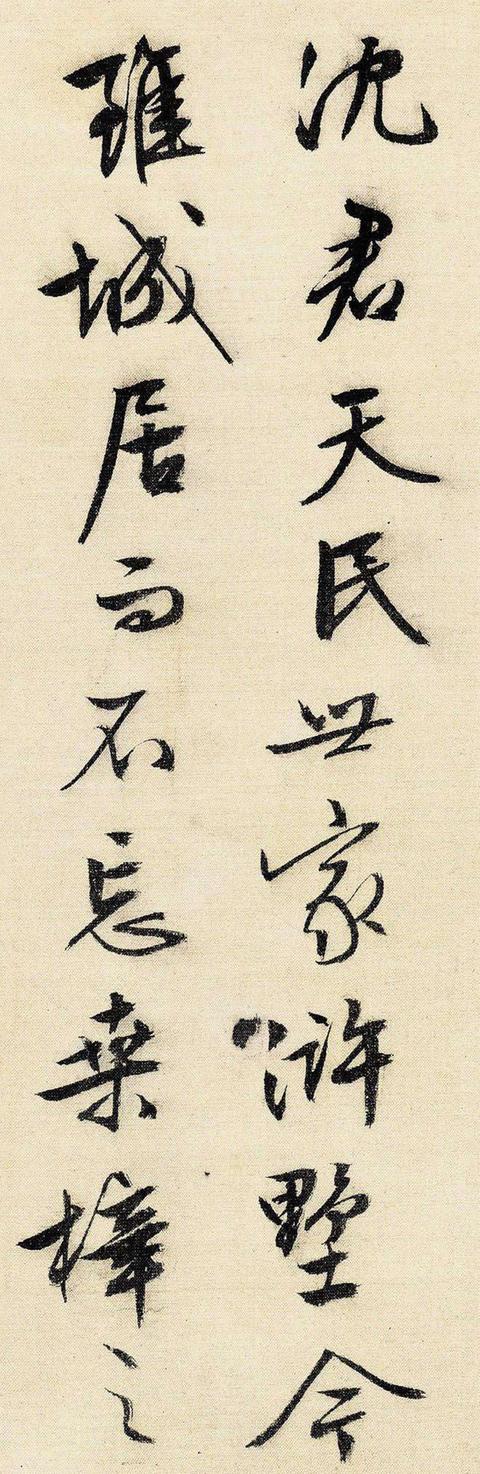 沈君天民世家滸墅今
雖城居而不忘桑梓之